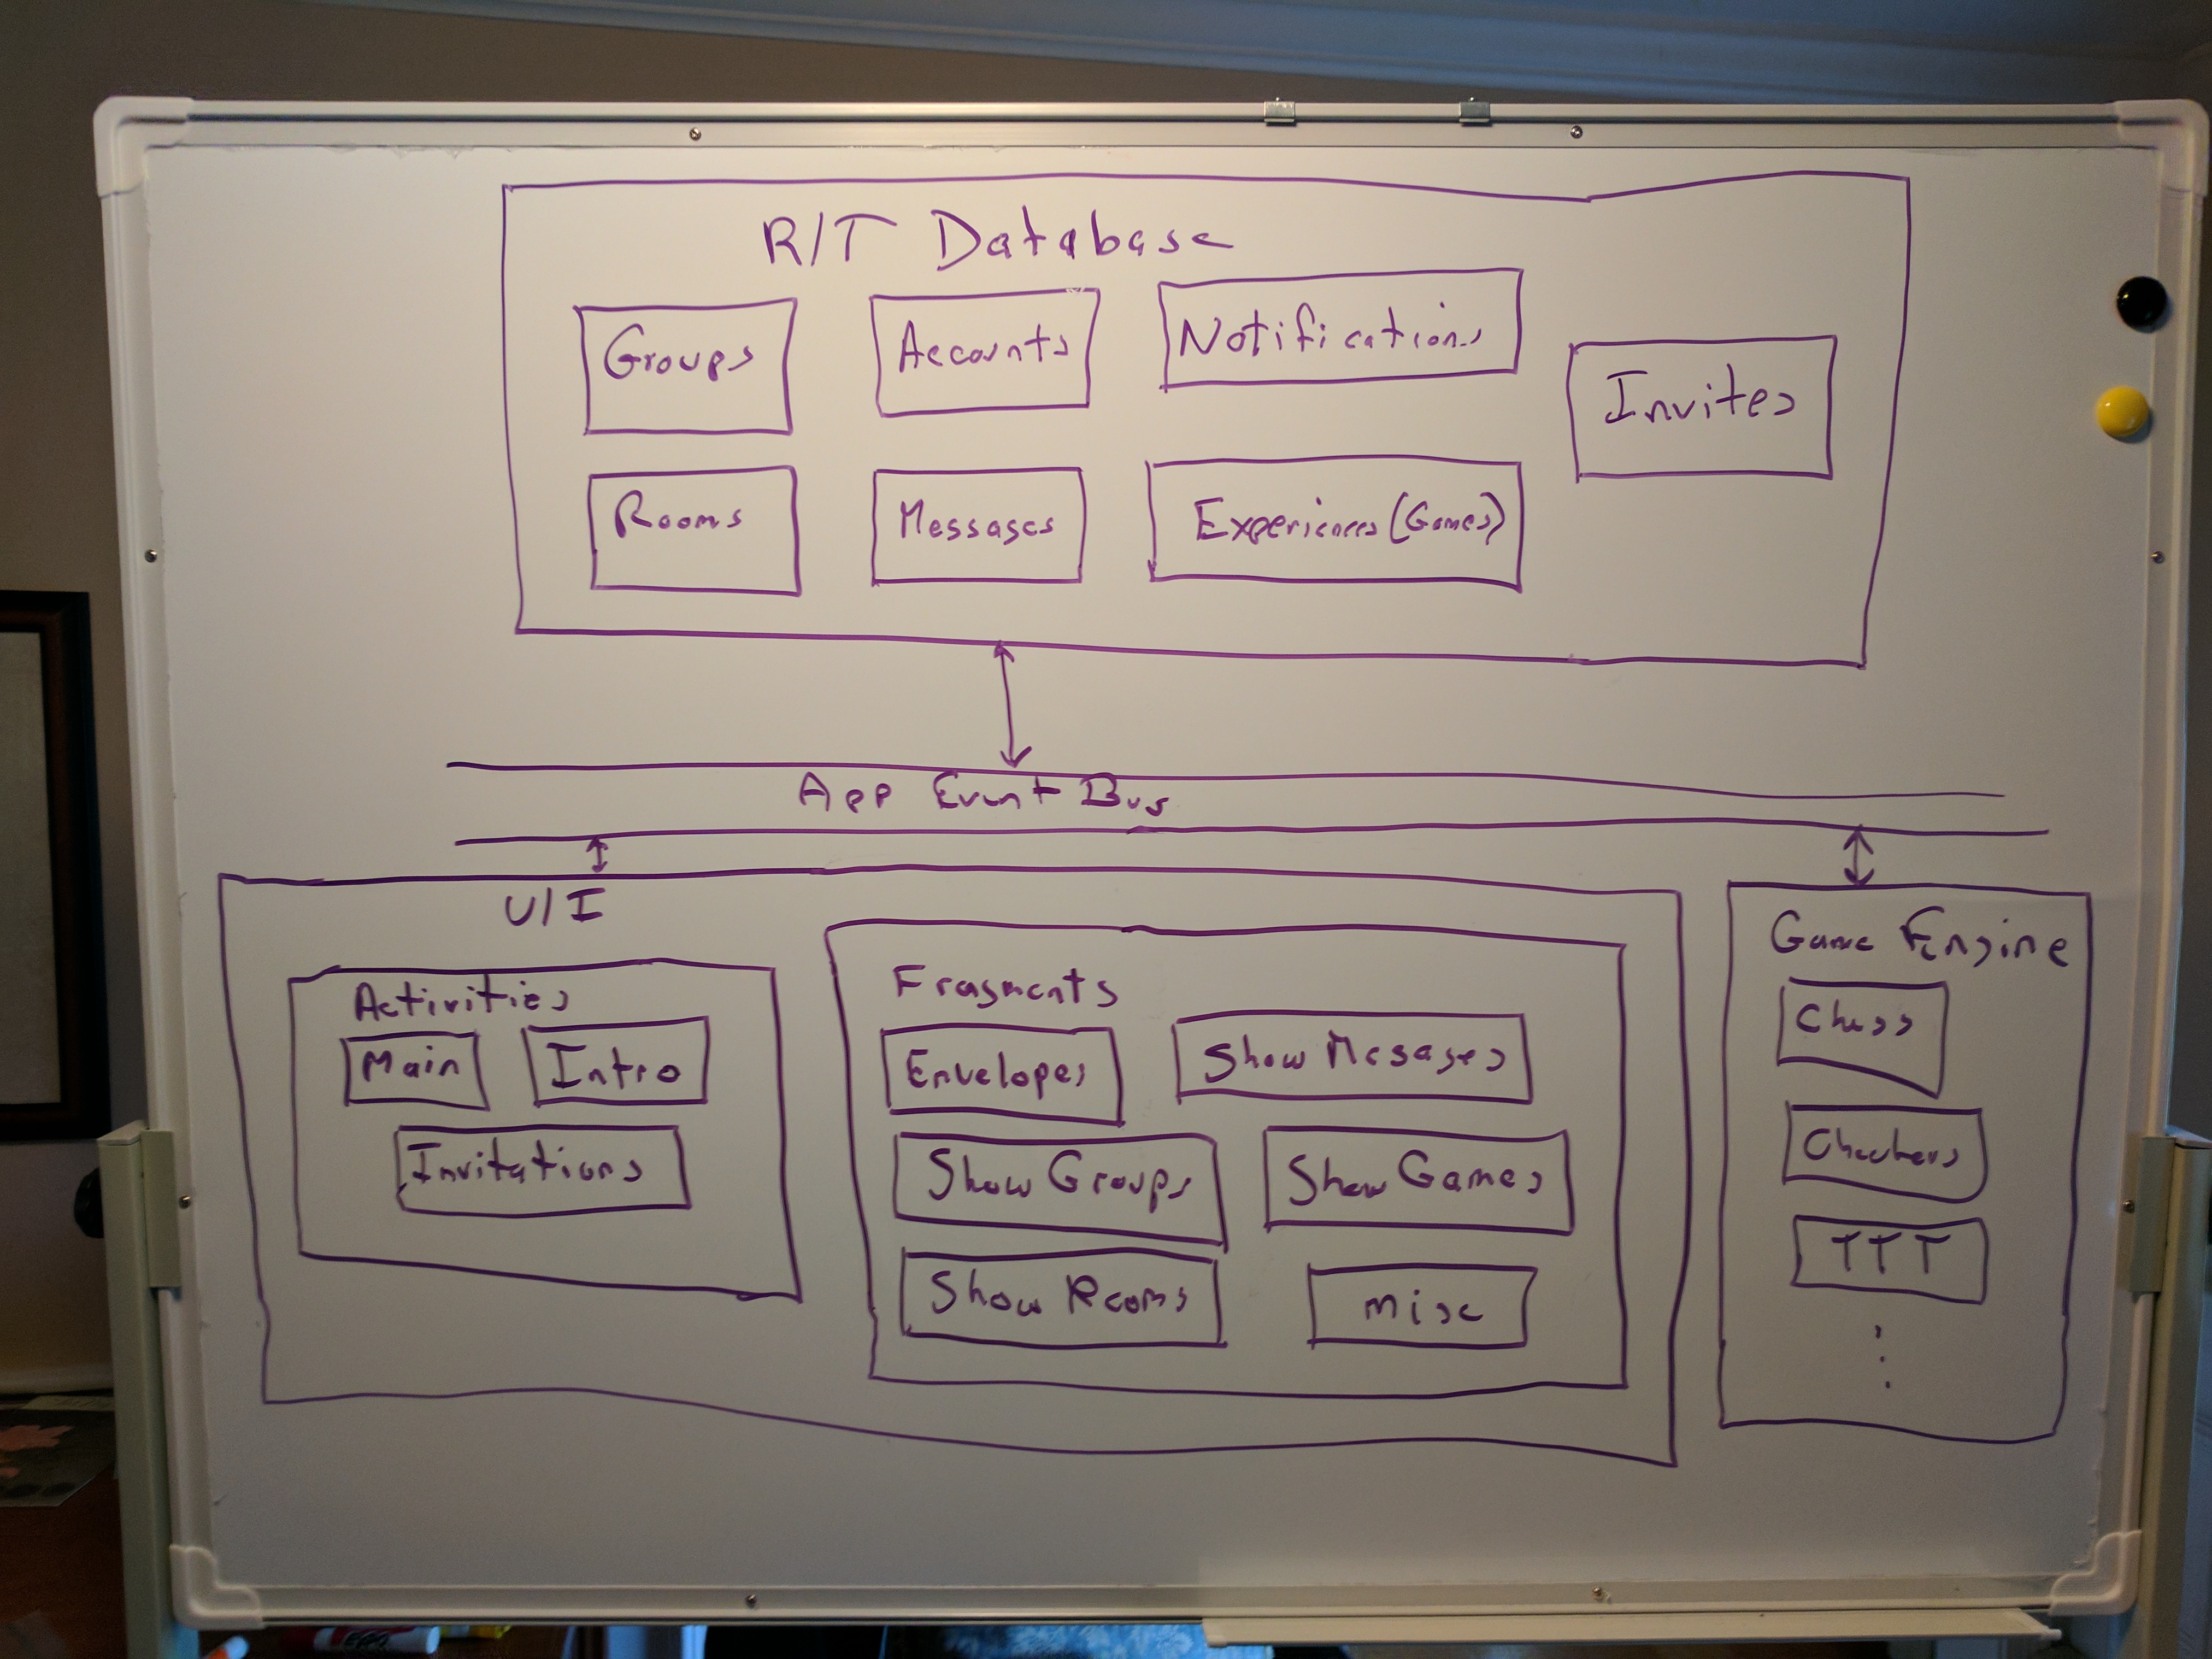 R/T Database
Groups
Accounts
Notifications
Invites
Rooms
Messages
Experiences (Games)
App Event Bus
U/I
Activities
Main
Intro
Invitations
Fragments
Envelopes
Show Mesages
Show Groups
Show Games
Show Rooms
misc
Game Engine
Chess
Checkers
TTT